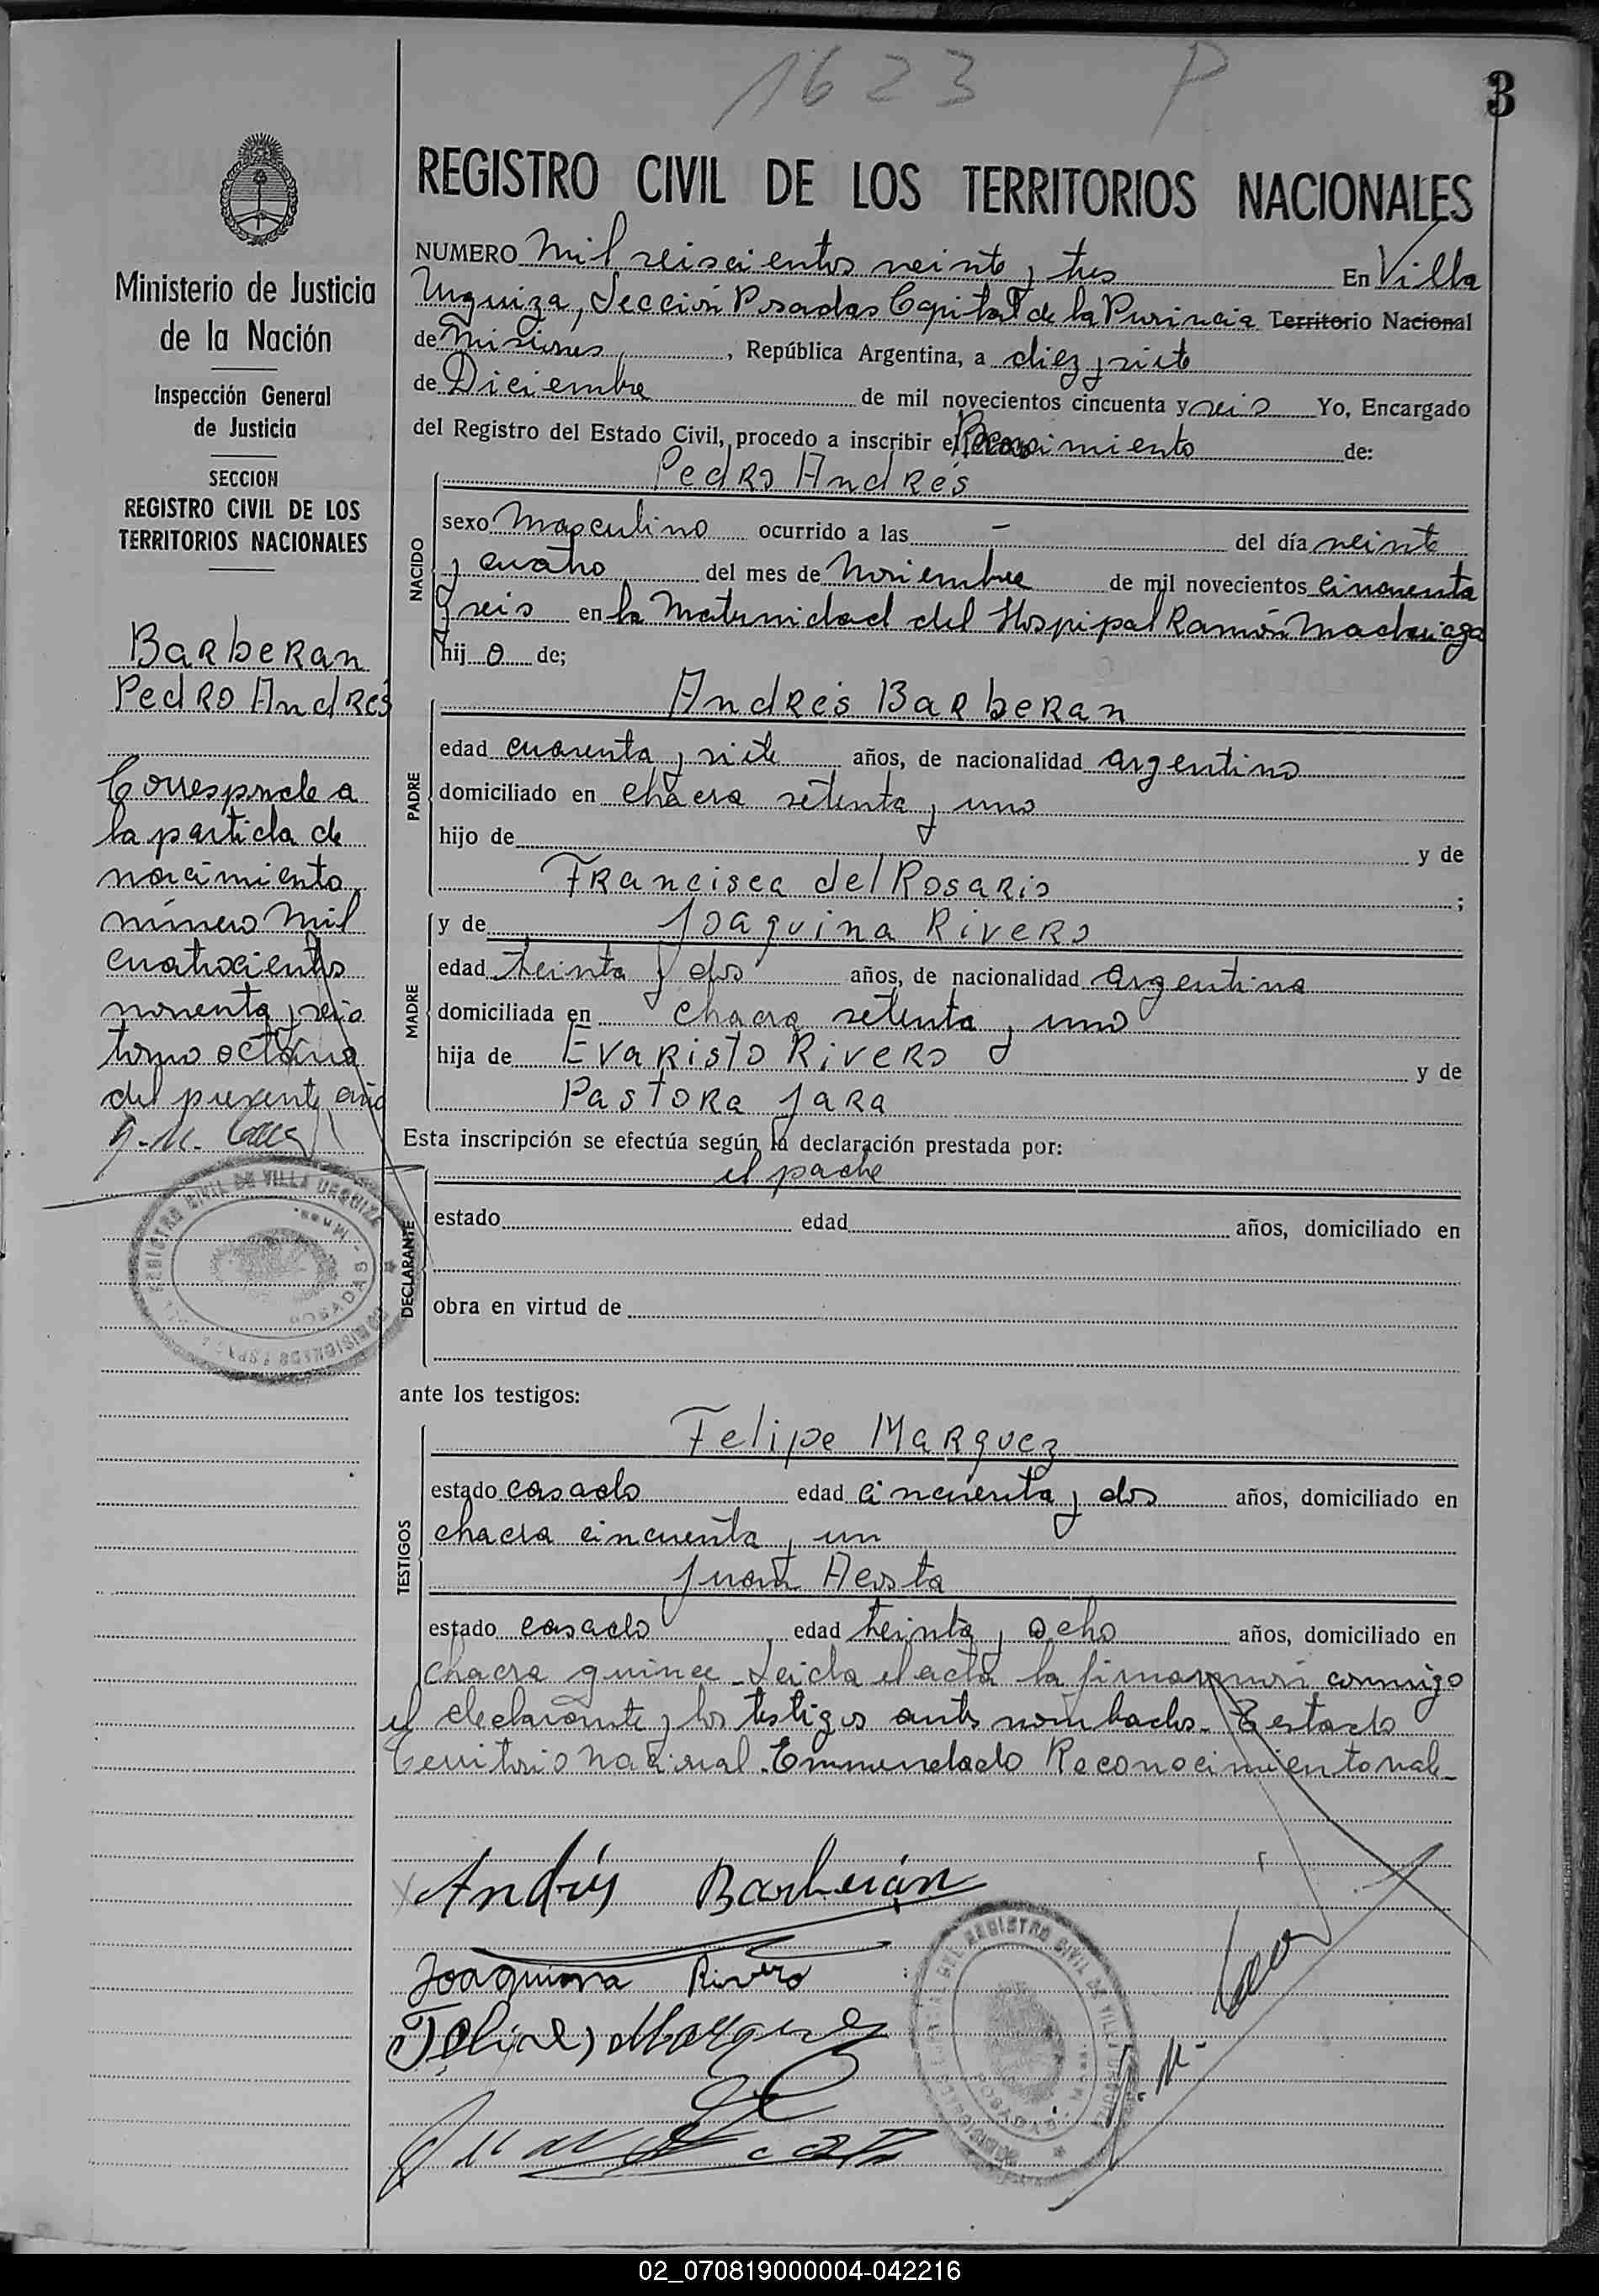 1623 P
3
Ministerio de Justicia
de la Nación
Inspección General
de Justicia
SECCION
REGISTRO CIVIL DE LOS
TERRITORIOS NACIONALES
Barberan
Pedro Andrés
Corresponde a
la partida de
nacimiento
número mil
cuatrocientos
noventa y seis
tomo octavo
del presente año
REGISTRO CIVIL DE VILLA URQUIZA
POSADAS
REGISTRO CIVIL DE LOS TERRITORIOS NACIONALES
NUMERO Mil seiscientos veinte y tres En Villa
Urquiza, Sección Posadas Capital de la Provincia Territorio Nacional
de Misiones, República Argentina, a diez y siete
de Diciembre de mil novecientos cincuenta y seis Yo, Encargado
del Registro del Estado Civil, procedo a inscribir el Reconocimiento de:
Pedro Andrés
NACIDO
sexo Masculino ocurrido a las - del día veinte
y cuatro del mes de Noviembre de mil novecientos cincuenta
y seis en la Maternidad del Hospipal Ramón Madariaga
hij o de;
PADRE
Andrés Barberan
edad cuarenta y siete años, de nacionalidad argentino
domiciliado en chacra setenta y uno
hijo de y de
Francisca del Rosario ;
MADRE
y de Joaquina Rivero
edad treinta y dos años, de nacionalidad argentina
domiciliada en chacra setenta y uno
hija de Evaristo Rivero y de
Pastora Jara
Esta inscripción se efectúa según la declaración prestada por:
DECLARANTE
el padre
estado edad años, domiciliado en
obra en virtud de
ante los testigos:
TESTIGOS
Felipe Marquez
estado casado edad cincuenta y dos años, domiciliado en
chacra cincuenta y un
Juan Acosta
estado casado edad treinta y ocho años, domiciliado en
chacra quince - Leida el acta la firmaron conmigo
el declarante y los testigos antes nombrados - Testado
Territorio Nacional - Enmendado Reconocimiento vale -
Andrés Barberán
Joaquina Rivero
Felipe Marquez
Juan Acosta
REGISTRO CIVIL DE VILLA URQUIZA
POSADAS
02_070819000004-042216